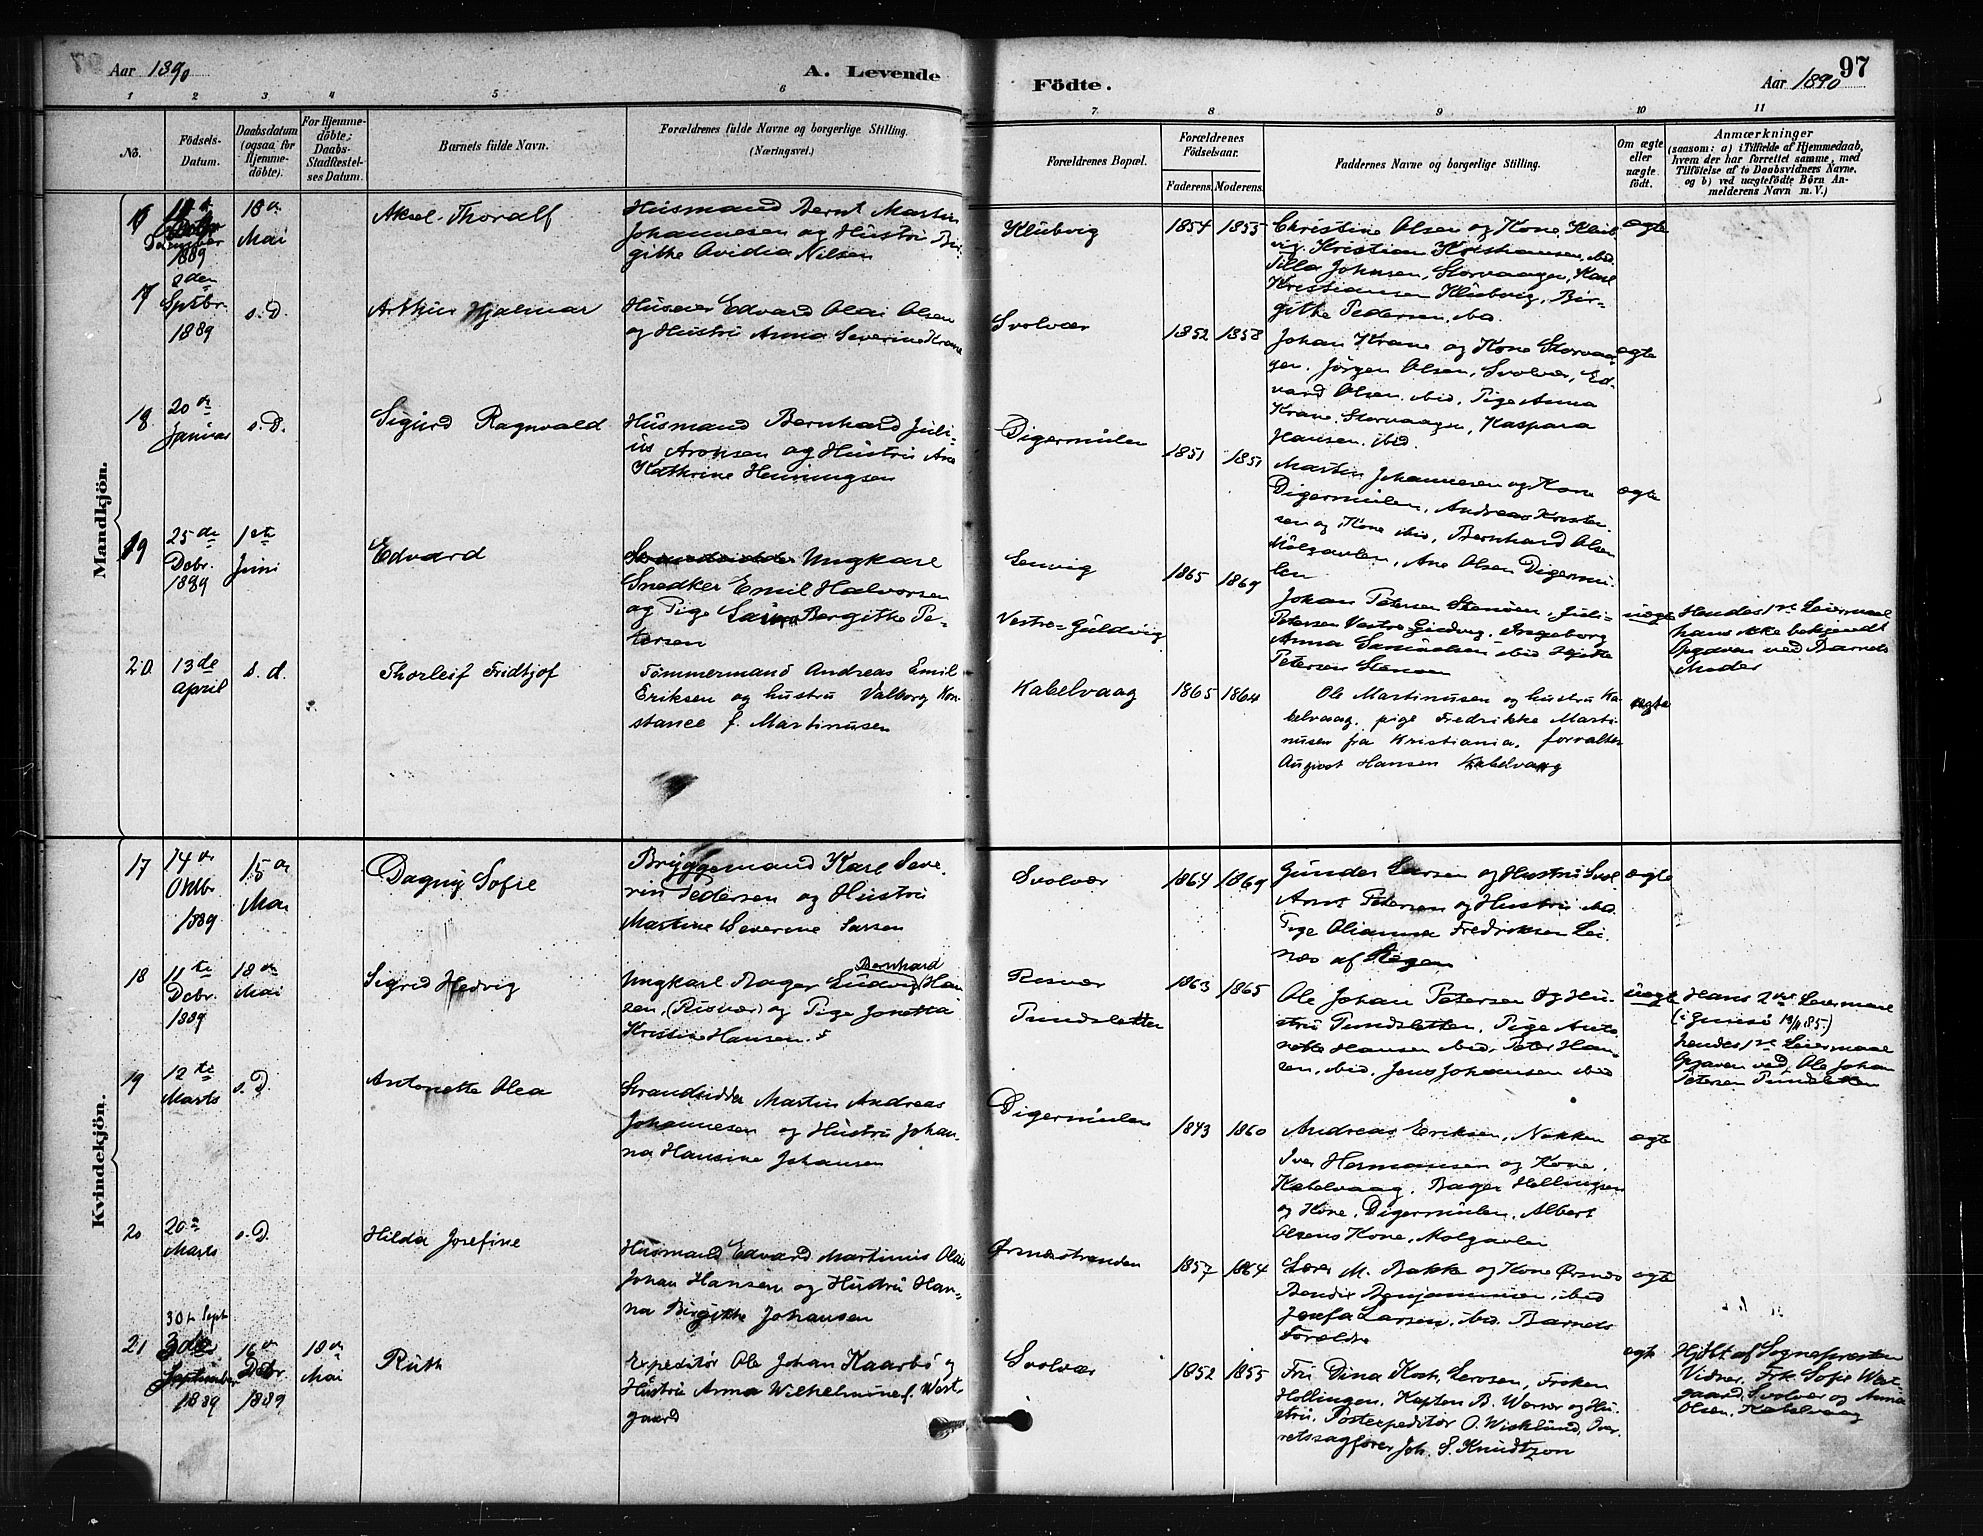 Aar 1890
A. Levende
Födte.
Aar 1890
97
1 2 3 4 5 6
7. 8 9 10 11
No.
Födsels-
Datum.
Daabsdatum
(ogsaa for
Hjemme-
döbte).
For Hjemme-
döbte;
Daabs-
Stadfæstel-
ses Datum.
Barnets fulde Navn.
Forældrenes fulde Navne og borgerlige Stilling.
(Næringsvei.)
Forældrenes Bopæl.
Forældrenes
Födselsaar.
Faderens. Moderens.
Faddernes Navne og borgerlige Stilling.
Om ægte
eller
uægte
födt.
Anmærkninger
(saasom: a) i Tilfælde af Hjemmedaab,
hvem der har forrettet samme, med
Tilföielse af to Daabsvidners Navne,
og b) ved uægtefödte Börn An-
melderens Navn m. V.)
Mandkjön.
16
1889
18de
Mai
Aksel Thoralf
Husmand Bernt Martin
Johannesen og Hustru Bir-
githe Ovidia Nilsen
Klubvig
1854 1855
Christine Olsen og Kone, Klub-
vig, Kristian Kristiansen, ibid.
Tilla Johnsen, Storvaagen, Karl
Kristiansen Klubvig, Bir-
githe Pedersen, ibid.
ægte
17
8den
Septbr.
1889
s. D.
Arthur Hjalmar
Huseier Edvard Olai Olsen
og Hustru Anna Severine Krane
Svolvær
1852 1858
Johan Krane og Kone Storvaa-
gen, Jörgen Olsen, Svolvær, Ed-
vard Olsen, ibid, Pige Anna
Krane, Storvaagen, Kaspara
Hansen, ibid.
ægte
18
20de
Januar
s. D.
Sigurd Ragnvald
Husmand Bernhard Juli-
us Aronsen og Hustru Ane
Kathrine Henningsen
Digermulen
1851 1851
Martin Johannesen og Kone
Digermulen, Andreas Kristen-
sen og Kone ibid, Bernhard Olsen
Molgavlen, Ane Olsen Digermu-
len
ægte
19
25de
Debr.
1889
1ste
Juni
Edvard
Ungkarl
Snedker Emil Halvorsen
og Pige Laura Bergithe Pe-
tersen
Lenvig
Vestre-Guldvig
1865 1869
Johan Petersen Stenöen, Juli-
Petersen Vestre Guldvig, Ingeborg
Anna Samuelsen ibid
Petersen Stenöen
uægte
Hendes 1ste Leiermaal
hans ikke bekjendt
Opgaven ved Barnets
Moder
20
13de
april
s. d.
Thorleif Fridtjof
Tömmermand Andreas Emil
Eriksen og hustru Valborg Kon-
stance f. Martinusen
Kabelvaag
1865 1864
Ole Martinusen og hustru Ka-
belvaag, pige Fredrikke Marti-
nusen fra Kristiania, forvalter
August Hansen Kabelvaag
ægte
Kvindekjön.
17
14de
Oktbr
1889
15de
Mai
Dagny Sofie
Bryggemand Karl Seve-
rin Pedersen og Hustru
Martine Severine Larsen
Svolvær
1864 1869
Gunder Larsen og Hustru Svol.
Arnt Petersen og Hustru ibid.
Pige Olianna Fredriksen Lei-
nes af Stegen
ægte
18
11te
Debr.
1889
18de
Mai
Sigrid Hedvig
Ungkarl Bager Ludvig Bernhard Han-
sen, (Risvær) og Pige Jonetta
Kristine Hansen.
Risvær
Pundsletten
1863 1865
Ole Johan Petersen og Hu-
stru Pundsletten, Pige Anto-
nette Hansen ibid, Peter Han-
sen, ibid. Jens Johansen ibid
uægte
Hans 2det Leiermaal
(i Gimsö 13/11 85.)
hendes 1ste Leiermaal
Opgaven ved Ole Johan
Petersen Pundsletten
19
12te
Marts
s. D.
Antonette Olea
Strandsidder Martin Andreas
Johannesen og Hustru Johan-
na Hansine Johansen
Digermulen
1843 1860
Andreas Eriksen, Nökken
Iver Hermansen og Kone,
Kabelvaag, Bager Hellingsen
og Kone, Digermulen, Albert
Olsens Kone, Molgavlen
ægte
20
20de
Marts
s. D.
Hilda Josefine
Husmand Edvard Martinus Olai
Johan Hansen og Hustru Han-
na Birgithe Johansen
Örsnesstranden
1857 1864
Lærer M. Bakke og Kone Örsnes
Bendix Benjaminsen, ibid
Josefa Larsen, ibid. Barnets
Forældre
ægte
21
30te Sept
September
1889
16de
Debr
1889
18de
Mai
Ruth
Expeditör Ole Johan Kaarbö og
Hustru Anna Wilhelmine f. West-
gaard
Svolvær
1852 1855
Fru Dina Koch, Lerosen, Fröken
Hollingen, Kaptein B. Werner og Hu-
stru, Postexpeditör O. Wicklund, Over-
retssagförer Joh. S. Knudtzon
ægte
Hjdbt af Sognepresten
Vidner, Frk. Sofie West-
gaard, Svolvær og Anna
Olsen, Kabelvaag